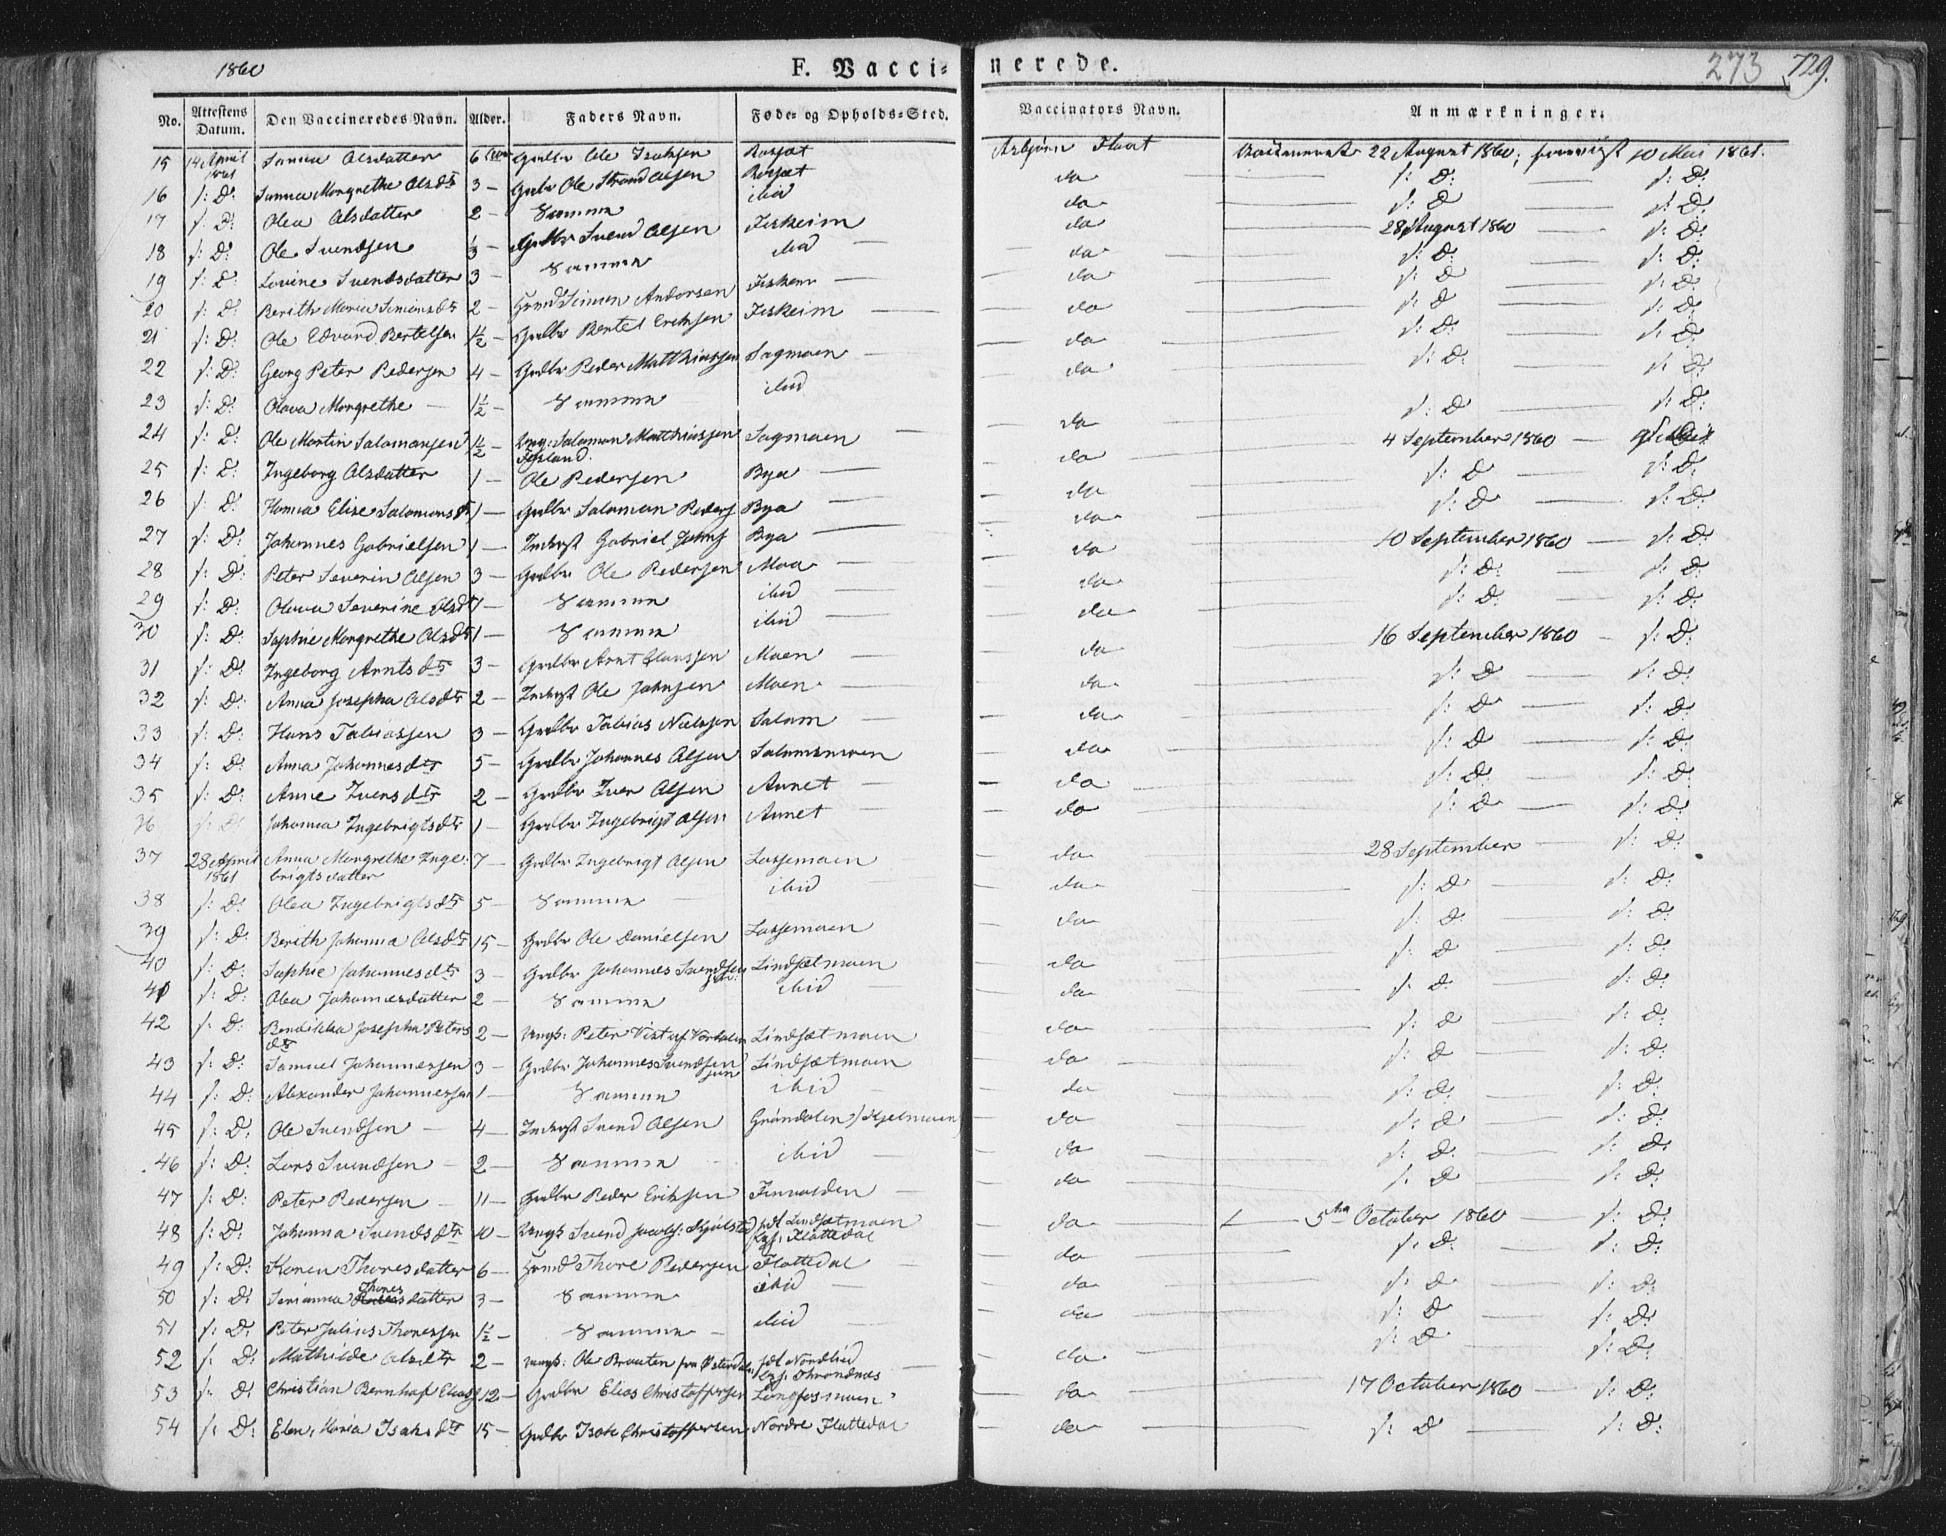 1860 F. Vaccinerede. 273 729.
No. Attestens Datum. Den Vaccineredes Navn. Alder. Faders Navn. Føde- og Opholds-Sted. Vaccinators Navn. Anmærkninger.
15 14 April 1861 Olsdatter 6 Gaardbr Ole Isaksen Rosset Asbjørn Flaat 22 August 1860; 10 Mai 1861.
16 s: D: Margrethe Olsdtr 3 — Ole Strand Olsen Rosset do s: D: s: D:
17 s: D: Olea Olsdatter 2 — Samme ibid do s: D s: D:
18 s: D: Ole Svendsen Svend Olsen Fiskeim do 28 August 1860 s: D:
19 s: D: Lovine Svendsdatter 3 — Samme ibid do s: D: s: D:
20 s: D: Berith Maria Simonsdtr 2 — Simon Andersen Fiskem do s: D s: D:
21 s: D: Ole Edvard Bertelsen 1½ — Grdbr Bertel Eriksen Fiskeim do s: D s: D:
22 s: D: Georg Peter Pedersen 4 — Grdbr Peder Matthiassen Sagmoen do s: D: s: D:
23 s: D: Olava Margrethe 1½ — Samme ibid do s: D: s: D:
24 s: D: Ole Martin Salomonsen 1½ — Salomon Matthiassen Sagmoen do 4 September 1860
25 s: D: Ingeborg Olsdatter 1 — Ole Pedersen Bya do s: D s: D:
26 s: D: Elise Salomonsdtr 1 — Grdbr Salomon Peders Bya do s: D s: D:
27 s: D: Johannes Gabrielsen 1 — Inderst Gabriel Johns Bya do 10 September 1860 s: D:
28 s: D: Peter Severin Olsen 3 — Grdbr Ole Pedersen Moa do s: D: s: D:
29 s: D: Olava Severine Olsdt 7 — Samme ibid do s: D: s: D:
30 s: D: Sophie Margrethe Olsdtr 1 — Samme ibid do 16 September 1860 — s: D:
31 s: D: Ingeborg Arntsdtr 3 — Grdbr Arnt Moen do s: D s: D:
32 s: D: Anna Josepha Olsdtr 2 — Inderst Ole Johnsen Moen do s: D s: D:
33 s: D: Hans Tobiassen 3 — Grdbr Tobias Nielssen Salom do s: D s: D:
34 s: D: Anna Johannesdtr 5 — Grdbr Johannes Olsen Salomsmoen do s: D s: D:
35 s: D: Anne Iversdtr 2 — Grdbr Iver Olsen Aunet do s: D s: D:
36 s: D: Johanna Ingebrigtsdtr 1 — Grdbr Ingebrigt Olsen Aunet do s: D s: D:
37 28 April 1861 Anna Margrethe Ingebrigtsdatter 7 — Grdbr Ingebrigt Olsen Lassemoen do 28 September s: D:
38 s: D: Olea Ingebrigtsdtr 5 — Samme ibid do s: D s: D:
39 s: D: Berith Johanna Olsdtr 15 — Grdbr Ole Danielsen Lassemoen do s: D s: D:
40 s: D: Sophie Johannesdtr 3 — Grdbr Johannes Svendsen Lindsetmoen do s: D s: D:
41 s: D: Olea Johannesdatter 2 — Samme ibid do s: D s: D:
42 s: D: Josepha Petersdtr 2 — Peter Lindsetmoen do s: D s: D:
43 s: D: Samuel Johannessen 3 — Grdbr Johannes Svendsen jun Lindsætmoen do s: D s: D:
44 s: D: Alexander Johannessen 1 — Samme ibid do s: D: s: D:
45 s: D: Ole Svendsen 4 — Inderst Svend Olsen Grøndalen / Hjelmoen do s: D: s: D:
46 s: D: Lars Svendsen 2 — Samme ibid do s: D: s: D:
47 s: D: Peter Pedersen 11 — Grdbr Peder Eriksen Finvolden do s: D s: D:
48 s: D: Johanna Svendsdtr 10 — Svend Jacobs: fdt Lindsætmoen Flattedal do 5te October 1860 s: D:
49 s: D: Karen Thoresdatter 6 — Thore Pedersen Flattedal do s: D: s: D:
50 s: D: Serianna Thoresdatter 3 — Samme ibid do s: D s: D:
51 s: D: Peter Julius Thoressen 1½ — Samme ibid do s: D s: D:
52 s: D: Mathilde Olsdtr 2 — Ole Brauten fra Østerdalen fdt Nordlied do s: D s: D:
53 s: D: Christian Elias 12 — Grdbr Elias Christoffersen do 17 October 1860 — s: D:
54 s: D: Elen Maria Isaksdtr 15 — Grdbr Isak Christoffersen Nordre Flattedal do s: D s: D: